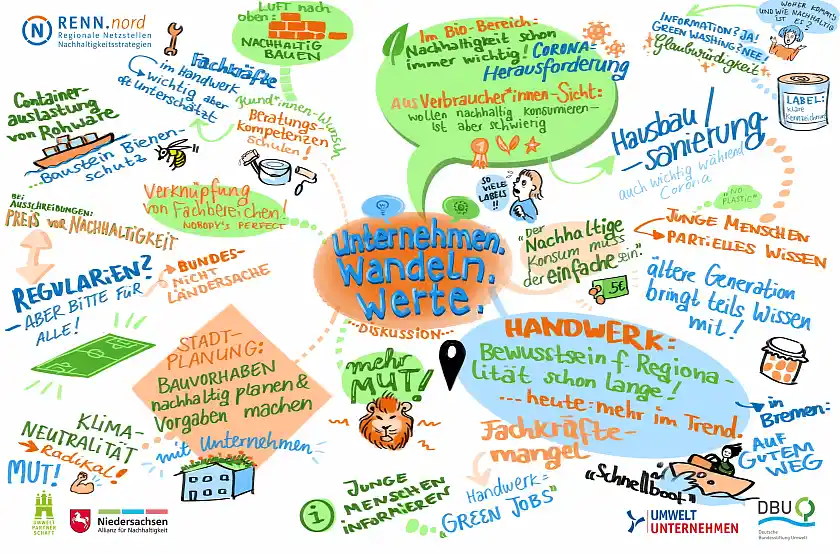 RENN.nord
Regionale Netzstellen
Nachhaltigkeitsstrategien
LUFT nach
oben:
NACHHALTIG
BAUEN
Fachkräfte
im Handwerk
wichtig aber
oft unterschätzt
Kund*innen-Wunsch
Beratungs-
kompetenzen
schulen!
Container-
auslastung
von Rohware
...Baustein Bienen-
schutz
Verknüpfung
von Fachbereichen!
NOBODY'S PERFECT
Im Bio-Bereich:
Nachhaltigkeit schon
immer wichtig! CORONA=
Herausforderung
Aus Verbraucher*innen-Sicht:
wollen nachhaltig konsumieren-
ist aber schwierig
SO
VIELE
LABELS
!!
INFORMATION? JA!
GREEN WASHING? NEE!
Glaubwürdigkeit
WOHER KOMMTS
UND WIE NACHHALTIG
IST ES?
LABEL:
klare
Kennzeichnung
Hausbau/
-sanierung
auch wichtig während
Corona
"NO
PLASTIC"
BEI
AUSSCHREIBUNGEN:
PREIS vor NACHHALTIGKEIT
REGULARIEN?
-ABER BITTE FÜR
ALLE!
BUNDES-
NICHT
LÄNDERSACHE
Unternehmen.
Wandeln.
Werte.
...DISKUSSION...
"Der
Nachhaltige
Konsum muss
der einfache sein."
5€
JUNGE MENSCHEN
PARTIELLES WISSEN
ältere Generation
bringt teils Wissen
mit!
STADT-
PLANUNG:
BAUVORHABEN
nachhaltig planen &
Vorgaben machen
mit Unternehmen
mehr
MUT!
HANDWERK:
Bewusstsein f. Regiona-
lität schon lange!
...heute: mehr im Trend.
Fachkräfte-
mangel
Handwerk=
"GREEN JOBS"
in
Bremen:
AUF
GUTEM
WEG
"Schnellboot"
KLIMA-
NEUTRALITÄT
Radikal!
MUT!
JUNGE
MENSCHEN
INFORMIEREN
UMWELT
PARTNER
SCHAFT
Niedersachsen
Allianz für Nachhaltigkeit
UMWELT
UNTERNEHMEN
DBU
Deutsche
Bundesstiftung Umwelt